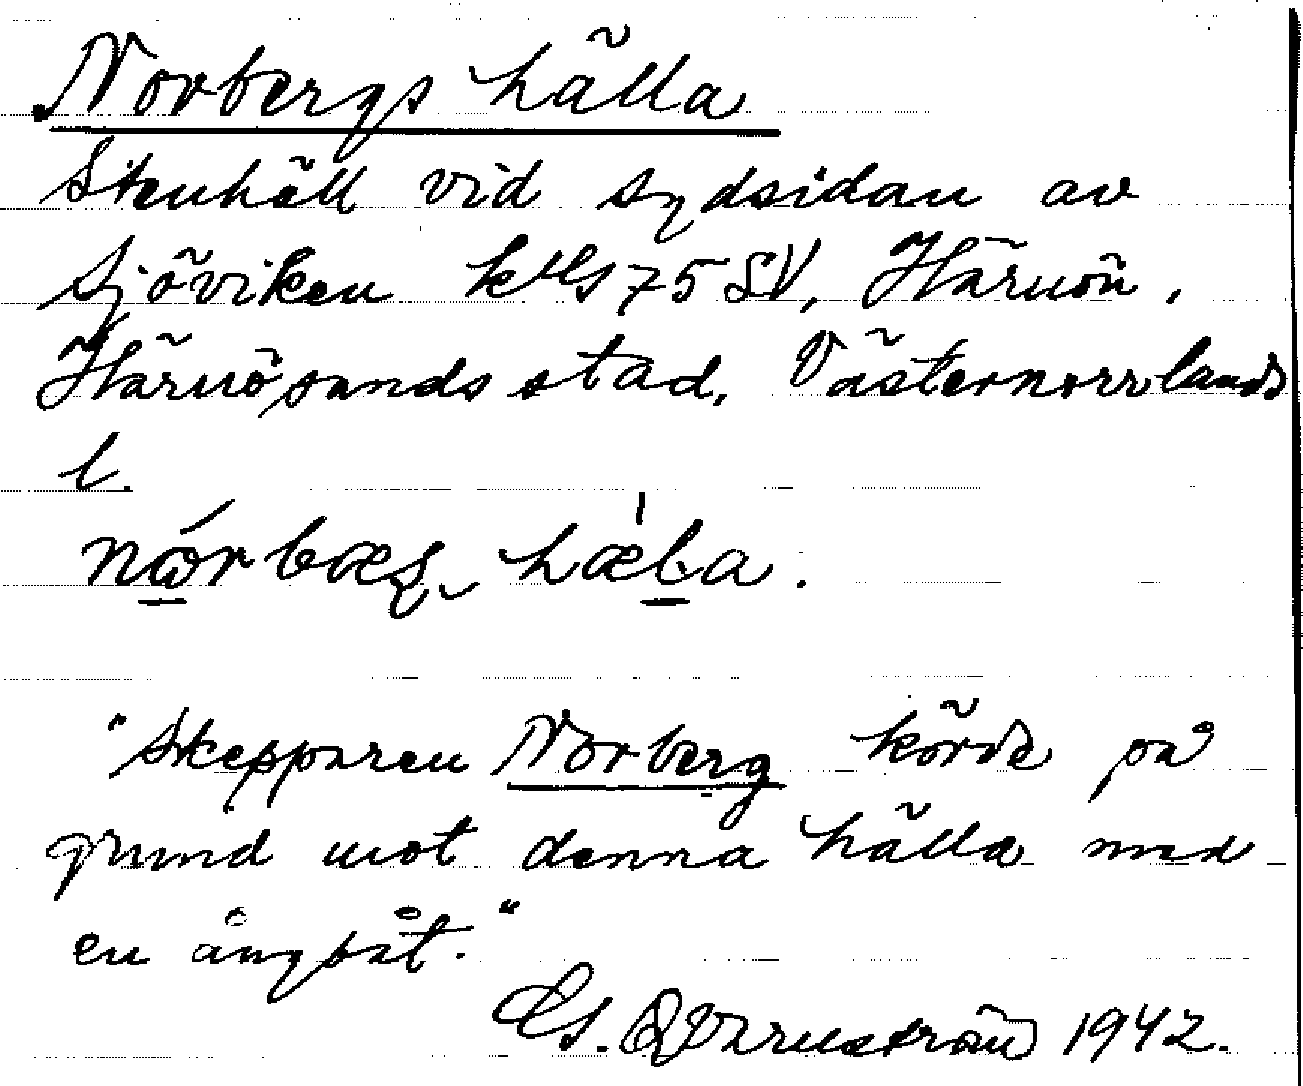 Norbergs hälla
Stenhäll vid sydsidan av
Sjöviken 75 SV, Härnön,
Härnösands stad, Västernorrlands
l.
"Skepparen Norberg körde på
grund mot denna hälla med
en ångbåt."
1942.